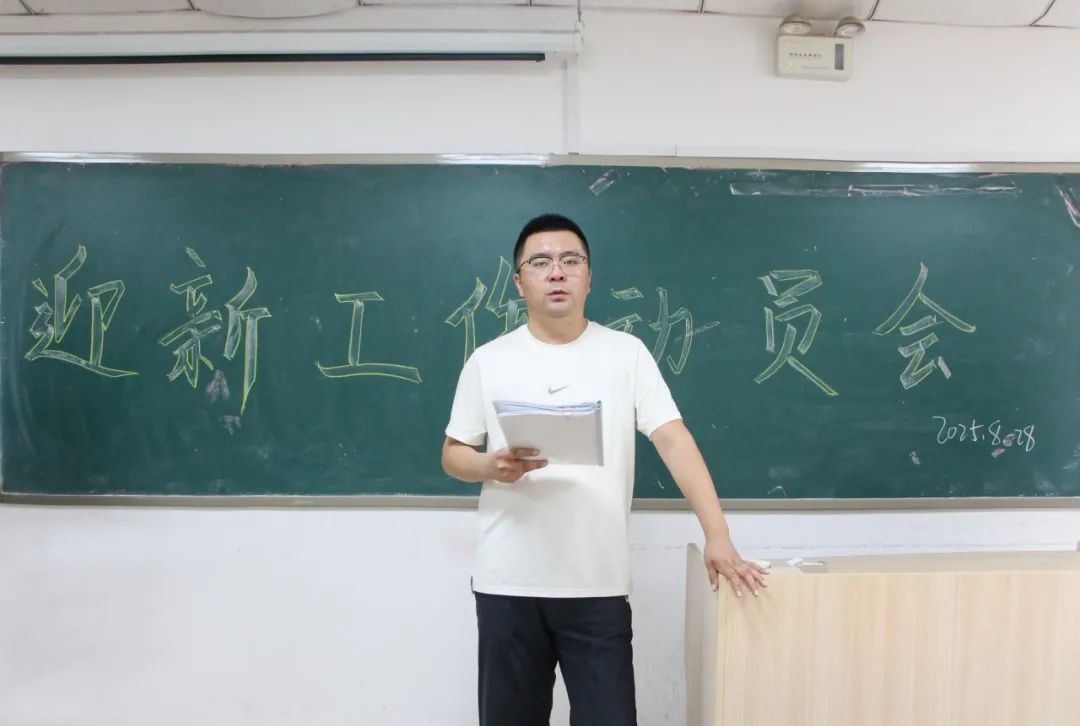 迎新工作动员会
2025.8.28